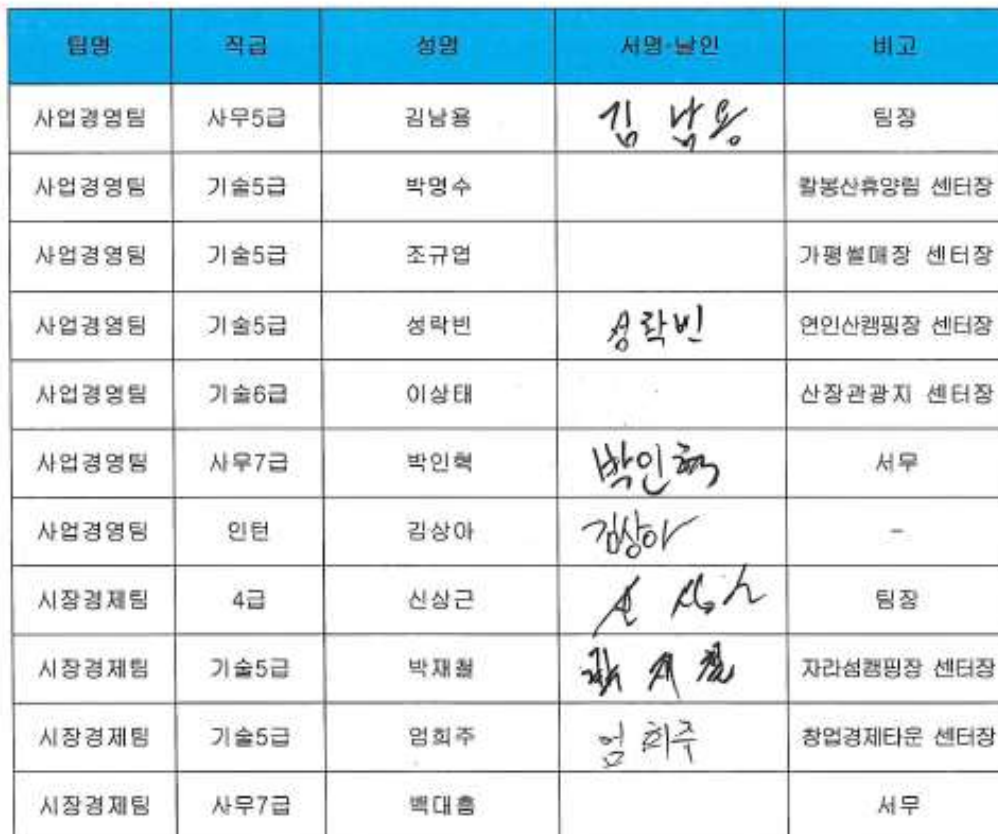 팀명 직급 성명 서명·날인 비고
사업경영팀 사무5급 김남용 김남용 팀장
사업경영팀 기술5급 박명수 칼봉산휴양림 센터장
사업경영팀 기술5급 조규엽 가평썰매장 센터장
사업경영팀 기술5급 성락빈 성락빈 연인산캠핑장 센터장
사업경영팀 기술6급 이상태 산장관광지 센터장
사업경영팀 사무7급 박인혁 박인혁 서무
사업경영팀 인턴 김상아 김상아 -
시장경제팀 4급 신상근 팀장
시장경제팀 기술5급 박재철 박재철 자라섬캠핑장 센터장
시장경제팀 기술5급 엄희주 엄희주 창업경제타운 센터장
시장경제팀 사무7급 백대흠 서무